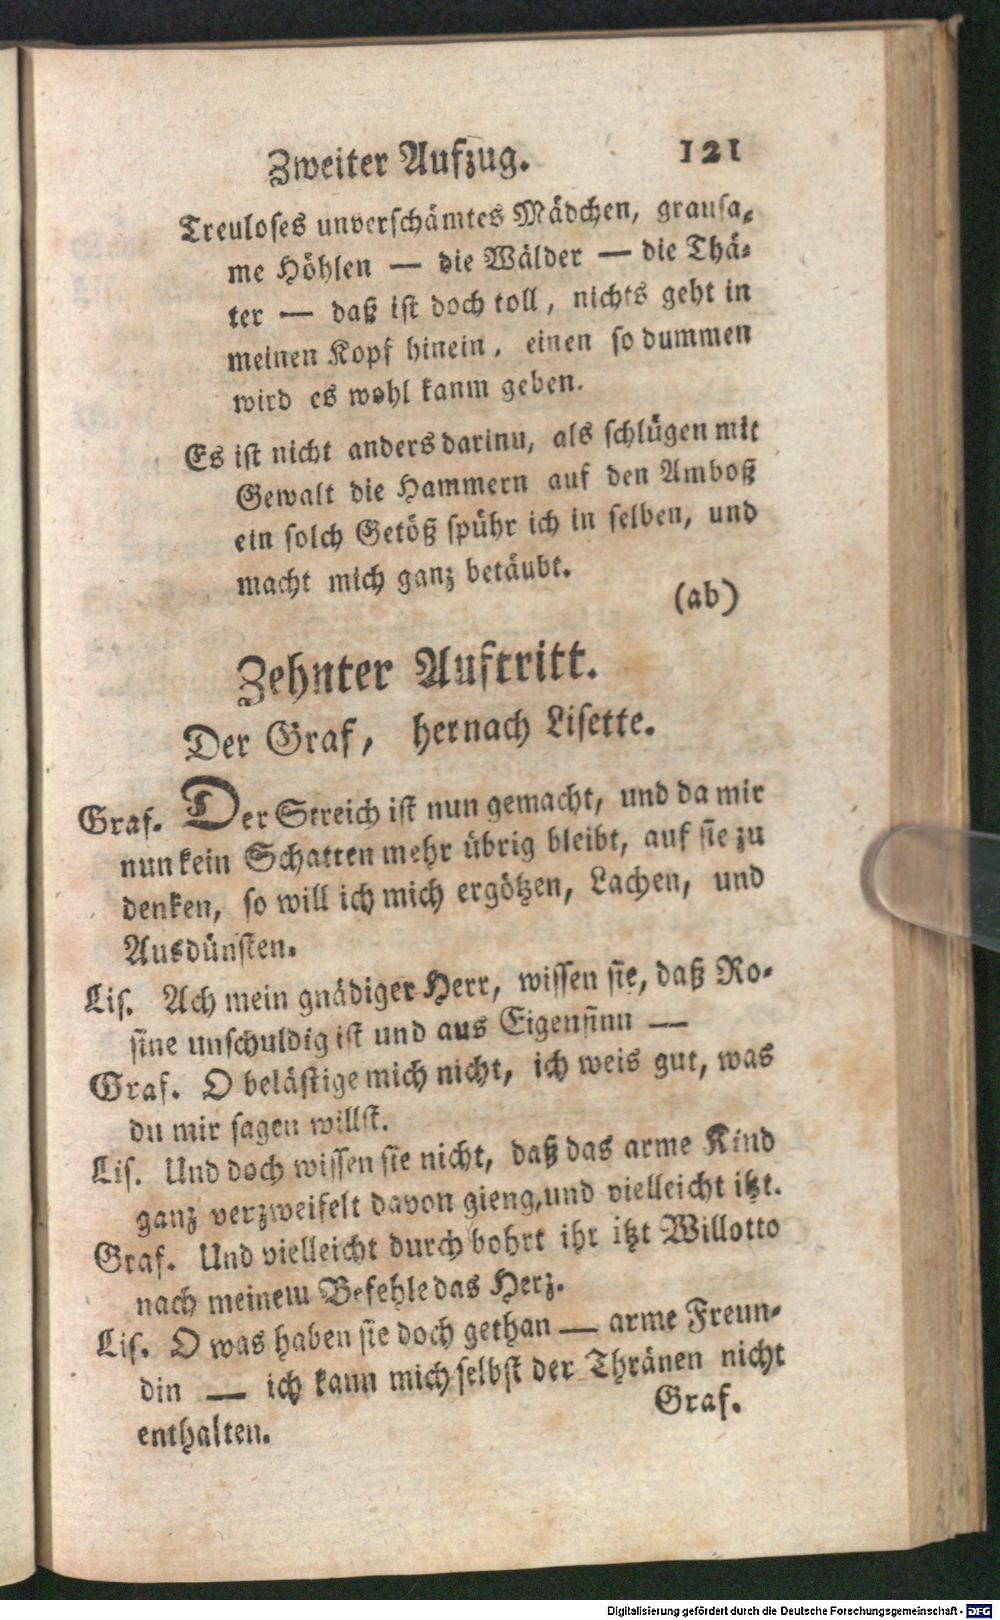 Zweiter Aufzug. 121
Treuloses unverschämtes Mädchen, grausa-
me Höhlen — die Wälder — die Thä-
ter — daß ist doch toll, nichts geht in
meinen Kopf hinein, einen so dummen
wird es wohl kanm geben.
Es ist nicht anders darinn, als schlügen mit
Gewalt die Hammern auf den Amboß
ein solch Getöß spühr ich in selben, und
macht mich ganz betäubt.
(ab)
Zehnter Auftritt.
Der Graf, hernach Lisette.
Graf. Der Streich ist nun gemacht, und da mir
nun kein Schatten mehr übrig bleibt, auf sie zu
denken, so will ich mich ergötzen, Lachen, und
Ausdünsten.
Lis. Ach mein gnädiger Herr, wissen sie, daß Ro-
sine unschuldig ist und aus Eigensinn —
Graf. O belästige mich nicht, ich weis gut, was
du mir sagen willst.
Lis. Und doch wissen sie nicht, daß das arme Kind
ganz verzweifelt davon gieng, und vielleicht itzt.
Graf. Und vielleicht durch bohrt ihr itzt Willotto
nach meinem Befehle das Herz.
Lis. O was haben sie doch gethan — arme Freun-
din — ich kann mich selbst der Thränen nicht
enthalten.
Graf.
Digitalisierung gefördert durch die Deutsche Forschungsgemeinschaft - DFG